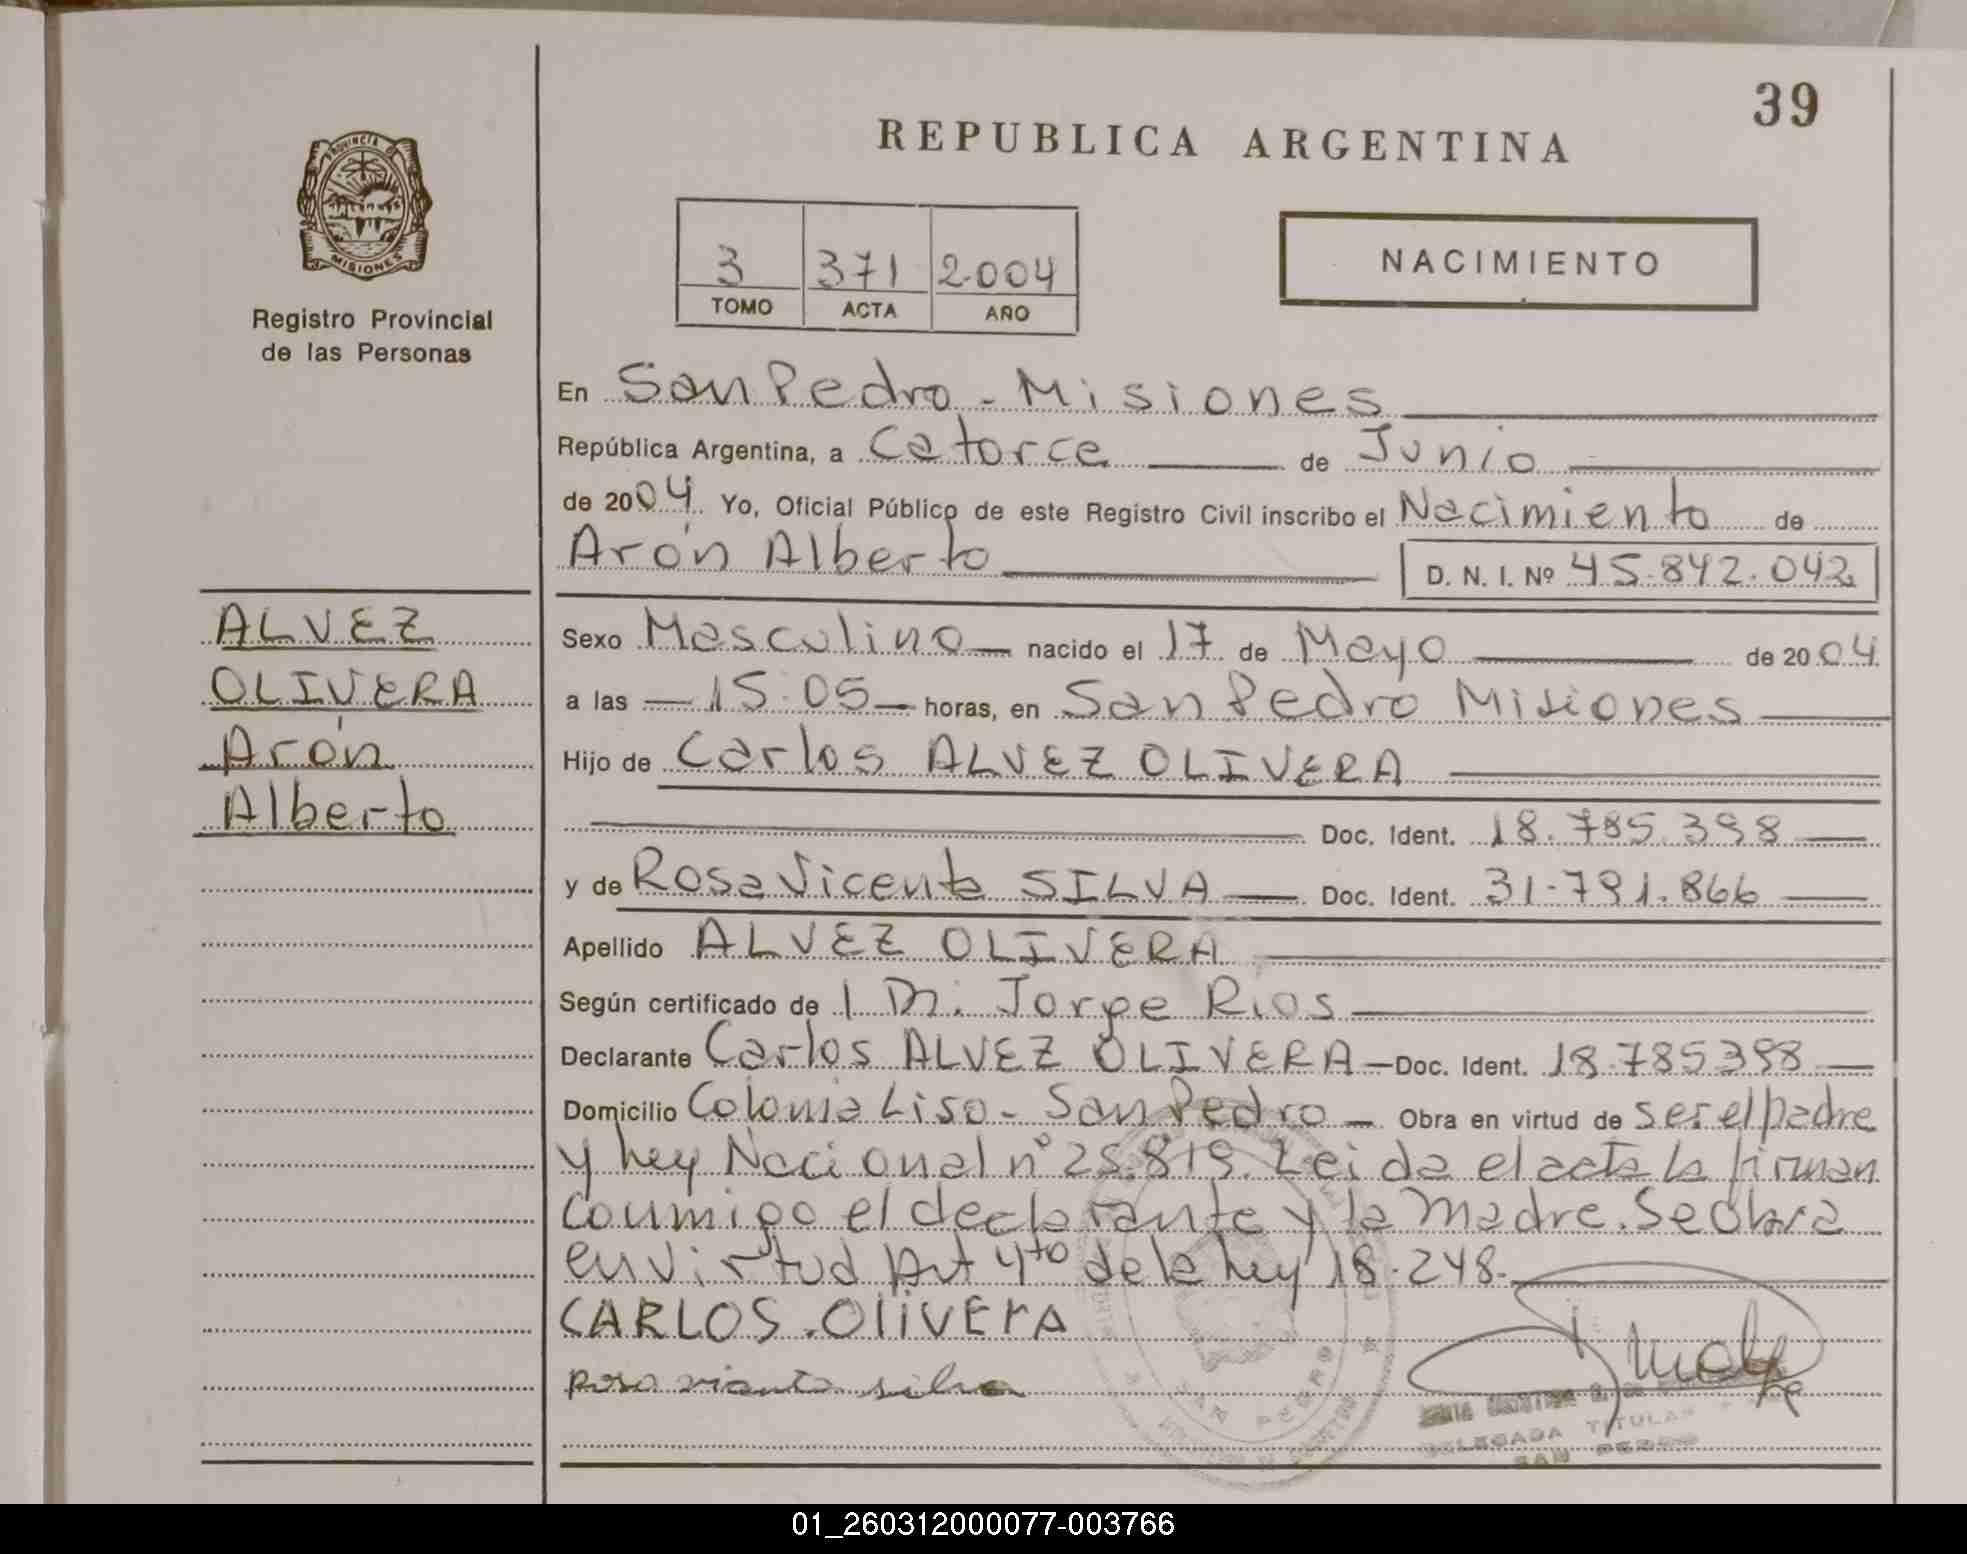 39
REPUBLICA ARGENTINA
PROVINCIA D
MISIONES
Registro Provincial
de las Personas
3 371 2.004
TOMO ACTA AÑO
NACIMIENTO
En San Pedro - Misiones
República Argentina, a Catorce de Junio
de 2004 Yo, Oficial Público de este Registro Civil inscribo el Nacimiento de
Arón Alberto D. N. I. Nº 45.842.042
ALVEZ
OLIVERA
Arón
Alberto
Sexo Masculino nacido el 17 de Mayo de 2004
a las 15:05 horas, en San Pedro Misiones
Hijo de Carlos ALVEZ OLIVERA
Doc. Ident. 18.785.398
y de Rosa Vicenta SILVA Doc. Ident. 31.791.866
Apellido ALVEZ OLIVERA
Según certificado de Jorge Rios
Declarante Carlos ALVEZ OLIVERA Doc. Ident. 18.785398
Domicilio Colonia Liso - San Pedro Obra en virtud de ser el padre
y Ley Nacional nº 25.819. Leida el acta la firman
conmigo el declarante y la madre. Se obra
en virtud Art 4to de la Ley 18.248.
CARLOS.OliVErA
rosa vicenta silva
SAN PEDRO
DELEGADA TITULAR
SAN PEDRO
01_260312000077-003766